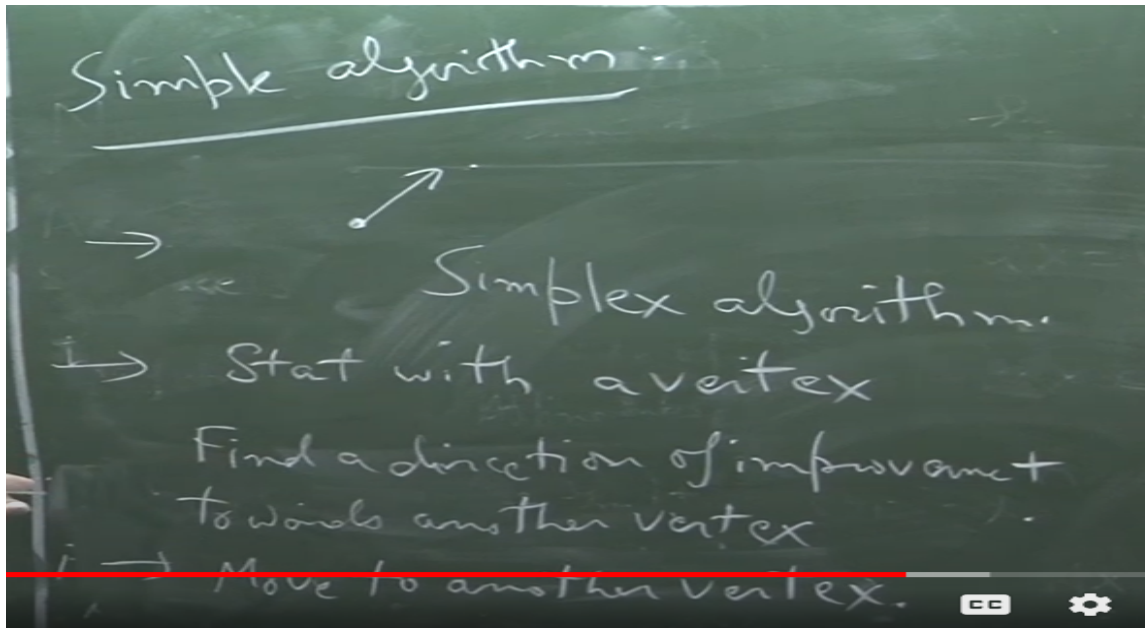 Simple algorithm.
→
Simplex algorithm.
i→ Stat with a vertex
Find a direction of improvemet
towards another vertex
→ Move to another vertex.
CC